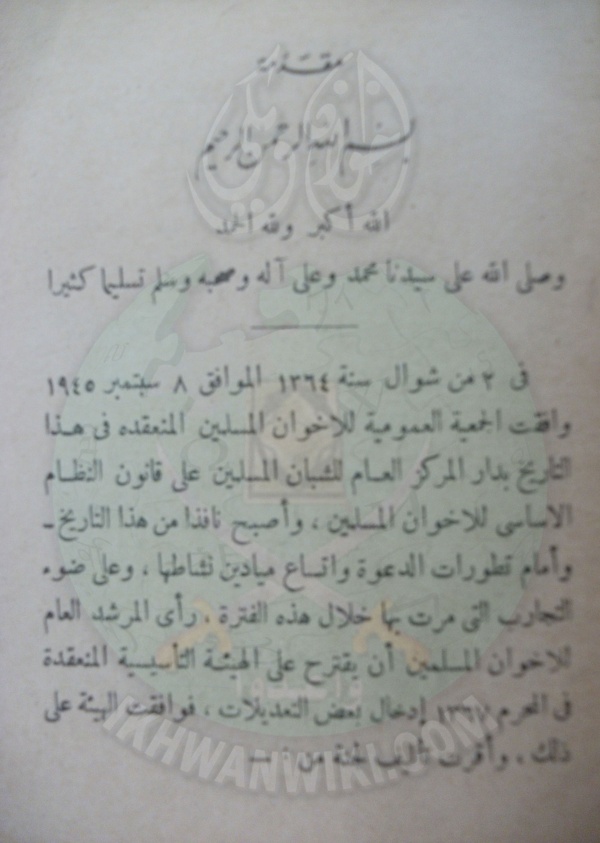 مقدمة
بسم الله الرحمن الرحيم
الله أكبر ولله الحمد
وصلى الله على سيدنا محمد وعلى آله وصحبه وسلم تسليما كثيرا
فى ٢ من شوال سنة ١٣٦٤ الموافق ٨ سبتمبر ١٩٤٥
وافقت الجمعية العمومية للاخوان المسلمين المنعقده فى هذا
التاريخ بدار المركز العام للشبان المسلمين على قانون النظام
الاساسى للاخوان المسلمين ، وأصبح نافذا من هذا التاريخ ـ
وأمام تطورات الدعوة واتساع ميادين نشاطها ، وعلى ضوء
التجارب التى مرت بها خلال هذه الفترة . رأى المرشد العام
للاخوان المسلمين أن يقترح على الهيئة التأسيسية المنعقدة
فى المحرم ١٣٦٧ إدخال بعض التعديلات ، فوافقت الهيئة على
ذلك ، وأقرت تأليف لجنة من : ــ
إخوان ويكي
وأعدوا
IKHWANWIKI.COM